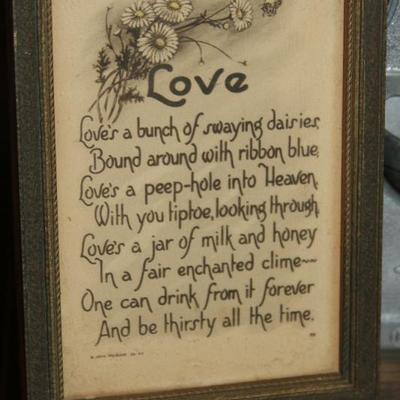 Love
Love's a bunch of swaying daisies,
Bound around with ribbon blue,
Love's a peep-hole into Heaven,
With you tiptoe, looking through,
Love's a jar of milk and honey
In a fair enchanted clime~~
One can drink from it forever
And be thirsty all the time.